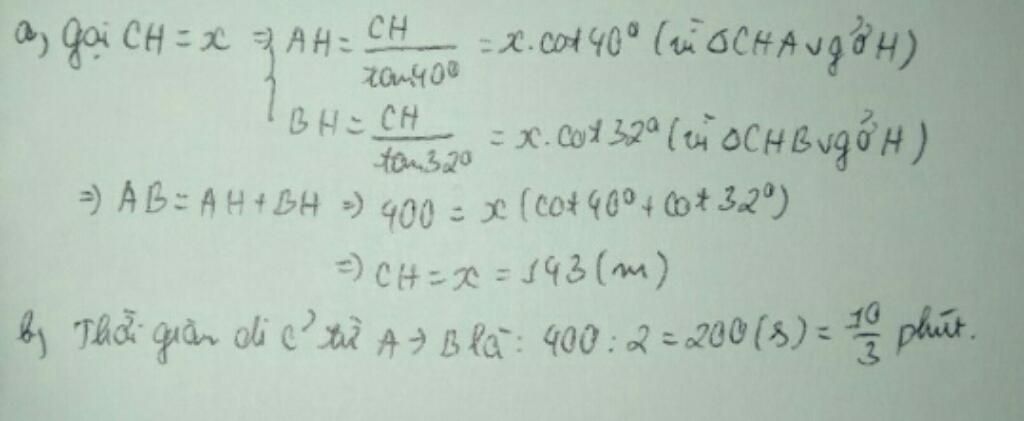 a, gọi CH = x => { AH = CH / tan40° = x.cot40° (vì ΔCHA vg ở H)
BH = CH / tan32° = x.cot32° (vì ΔCHB vg ở H)
=> AB = AH + BH => 400 = x (cot40° + cot32°)
=> CH = x = 143 (m)
b, Thời gian đi từ A → B là: 400 : 2 = 200 (s) = 10/3 phút.